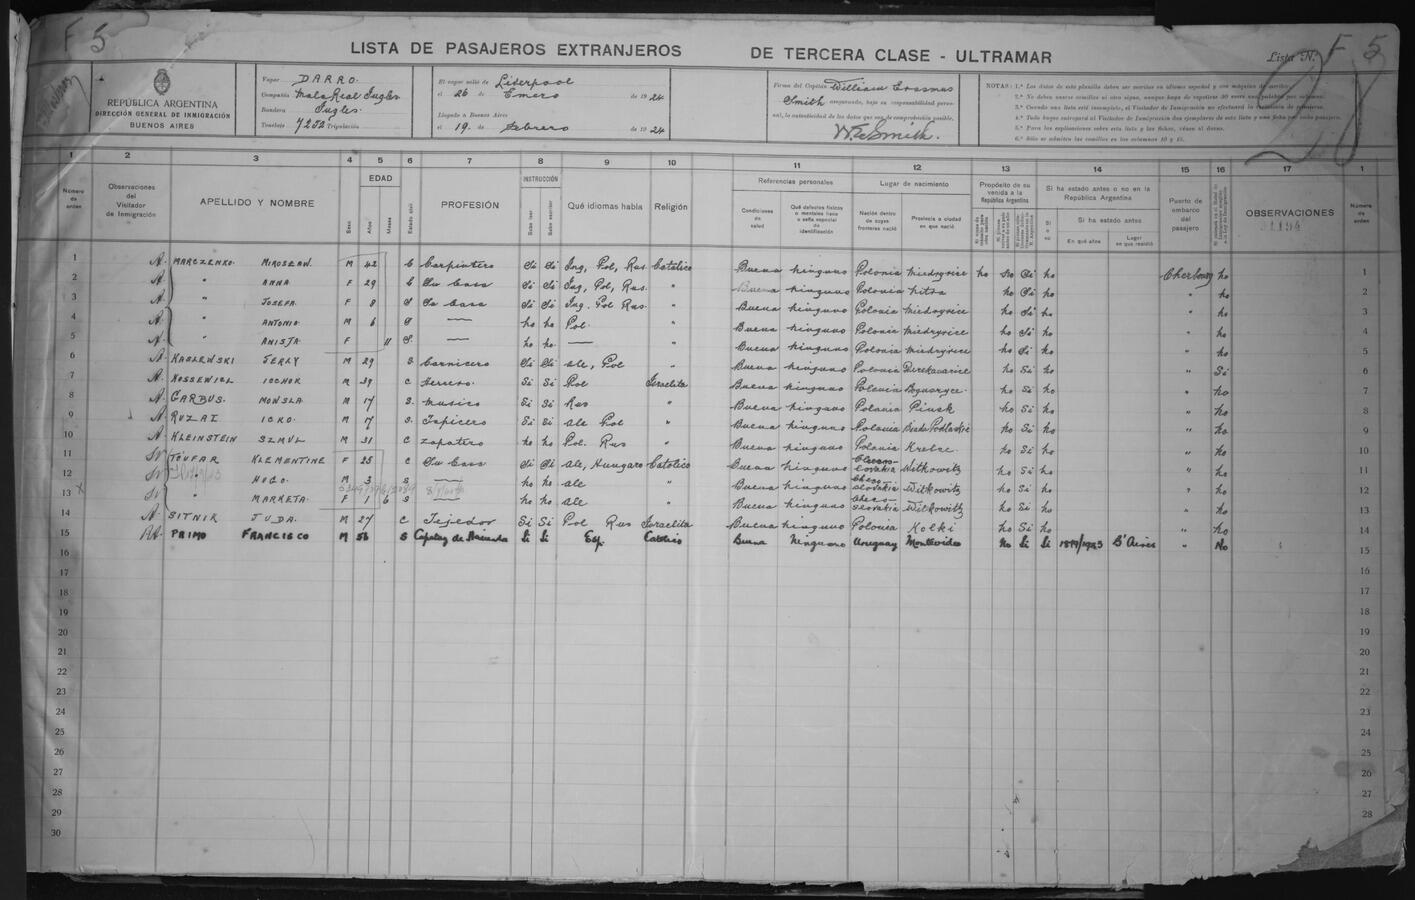 F 5
LISTA DE PASAJEROS EXTRANJEROS DE TERCERA CLASE - ULTRAMAR
Lista N.
F 5
28
REPÚBLICA ARGENTINA
DIRECCIÓN GENERAL DE INMIGRACIÓN
BUENOS AIRES
Vapor DARRO.
Compañía Mala Real Inglesa
Bandera Inglés.
Tonelaje 7252 Tripulación
El vapor salió de Liverpool
el 26 de Enero de 1924
Llegado a Buenos Aires
el 19. de Febrero de 1924
Firma del Capitán William Erasmus
Smith asegurando, bajo su responsabilidad personal, la autenticidad de los datos que son de comprobación posible.
W E Smith.
NOTAS: 1.ª Los datos de esta planilla deben ser escritos en idioma español y con máquina de escribir.
2.ª No deben usarse comillas ni otro signo, aunque haya de repetirse 30 veces una palabra por columna.
3.ª Cuando una lista esté incompleta, el Visitador de Inmigración no efectuará la
4.ª Todo buque entregará al Visitador de Inmigración dos ejemplares de esta lista y una ficha por cada pasajero.
5.ª Para las explicaciones sobre esta lista y las fichas, véase al dorso.
6.ª Sólo se admiten las comillas en las columnas 10 y 15.
1 2 3 4 5 6 7 8 9 10 11 12 13 14 15 16 17 1
Número de orden
Observaciones del Visitador de Inmigración
APELLIDO Y NOMBRE
Sexo
EDAD
Años
Meses
Estado civil
PROFESIÓN
INSTRUCCIÓN
Sabe leer
Sabe escribir
Qué idiomas habla
Religión
Referencias personales
Condiciones de salud
Qué defectos físicos o mentales tiene o seña especial de identificación
Lugar de nacimiento
Nación dentro de cuyas fronteras nació
Provincia o ciudad en que nació
Propósito de su venida a la República Argentina
Si ha estado antes o no en la República Argentina
Si o no
Si ha estado antes
En qué años
Lugar en que residió
Puerto de embarco del pasajero
OBSERVACIONES
Número de orden
1 A. MARCZENKO. MIROSLAW. M 42 C Carpintero Si Si Ing, Pol, Rus. Católico Buena Ninguno Polonia Miedryrice No No Si No Cherbourg No 1
2 A. " ANNA F 29 C Su Casa Si Si Ing, Pol, Rus. " Buena Ninguno Polonia No Si No " No 2
3 A. " JOSEFA. F 8 S Su Casa Si Si Ing. Pol Rus. " Buena Ninguno Polonia Miedryrice No Si No " No 3
4 A. " ANTONIO. M 6 S — No No Pol. " Buena Ninguno Polonia Miedryrice No Si No " No 4
5 A. " F 11 S. — No No — " Buena Ninguno Polonia Miedryrice No Si No " No 5
6 A. KASLEWSKI JERLY M 29 S. Carnicero Si Si Ale, Pol " Buena Ninguno Polonia No Si No " Si 6
7 A. M 39 C Herrero. Si Si Pol Israelita Buena Ninguno Polonia No Si No " No 7
8 A. GARBUS. MONSLA. M 17 S. Musico Si Si Rus " Buena Ninguno Polonia Pinsk No Si No " No 8
9 A. RUZAI ICKO. M 17 S. Tapicero Si Si Ale Pol " Buena Ninguno Polonia No Si No " No 9
10 A. KLEINSTEIN SZMUL M 31 C Zapatero No No Pol. Rus " Buena Ninguno Polonia No Si No " No 10
11 TOUFAR KLEMENTINE F 25 C Su Casa Si Si Ale, Hungaro Católico Buena Ninguno Checo-slovakia Witkowitz No Si No " No 11
12 " HUGO. M 3 S — No No Ale " Buena Ninguno Checo slovakia Witkowitz No Si No " No 12
13 x " MARKETA. F 1 6 S — No No Ale " Buena Ninguno Checo-slovakia Witkowitz No Si No " No 13
14 A. SITNIK JUDA. M 27 C Tejedor Si Si Pol Rus Israelita Buena Ninguno Polonia Kolki No Si No " No 14
15 PRIMO FRANCISCO M 56 S Capataz de Hacienda Si Si Esp. Católico Buena Ninguno Uruguay Montevideo No Si Si B' Aires " No 15
16
17 17
18 18
19 19
20 20
21 21
22 22
23 23
24 24
25 25
26 26
27 27
28 28
29
30